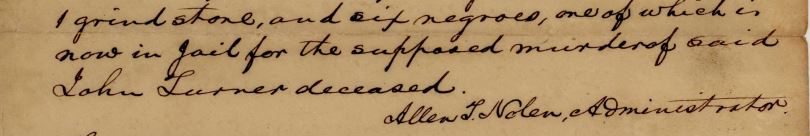 1 grind stone, and six negroes, one of which is
now in Jail for the supposed murder of said
John Turner deceased.
Allen T. Nolen, Administrator.